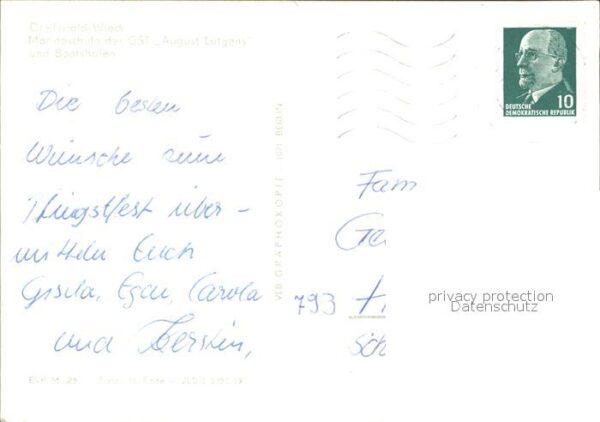 Greifswald-Wieck
Marineschule der GST „August Lütgens"
und Bootshafen
Die besten
Wünsche zum
Pfingstfest über-
mitteln Euch
Gisela, Egon, Carola
und Kerstin,
VEB GRAPHOKOPIE BERLIN
DEUTSCHE
DEMOKRATISCHE REPUBLIK
10
Fam
Ge
793
Sch
privacy protection
Datenschutz